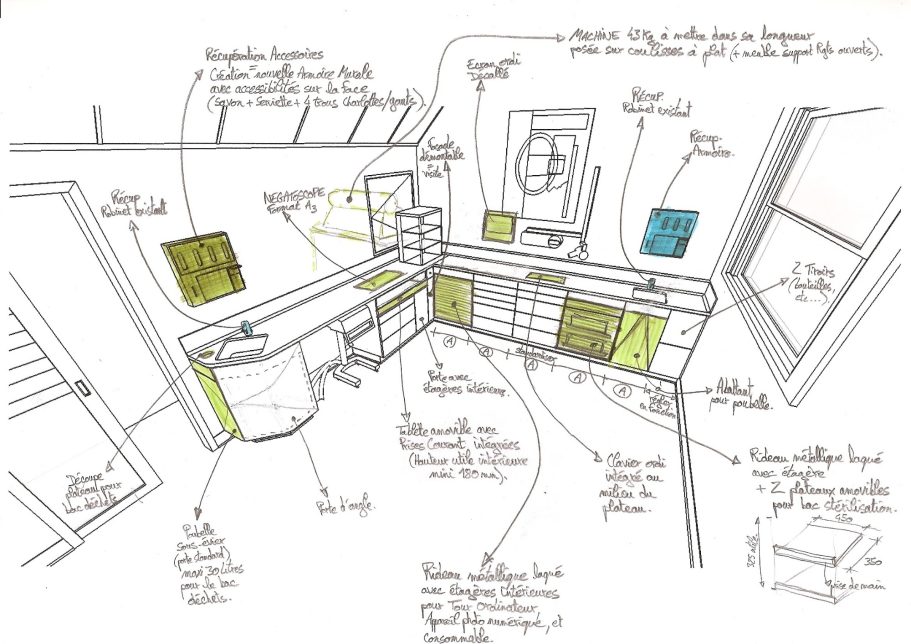 MACHINE 43 Kg à mettre dans sa longueur
posée sur coulisses à plat (+ meuble support Pgts ouverts).
Récupération Accessoires
Création = nouvelle Armoire Murale
avec accessibilités sur la face
(Savon + Serviette + 4 trous Charlottes/gants).
Ecran ordi
Décallé
Récup.
Robinet existant
Récup.
Armoire.
Façade
démontable
= visite
Récup
Robinet existant
NEGATOSCOPE
Format A3
2 Tiroirs
(bouteilles,
etc...).
A
A
standardiser
A
A
A
régler
en fonction
Porte avec
étagères intérieure.
Abattant
pour poubelle.
Tablette amovible avec
Prises Courant intégrées
(Hauteur utile intérieure
mini 180 mm).
Clavier ordi
intégré au
milieu du
plateau.
Rideau métallique laqué
avec étagère
+ 2 plateaux amovibles
pour bac stérilisation.
450
350
325
prise de main
Découpe
plateau pour
bac déchets
Porte d'angle.
Poubelle
sous-évier
(porte standard)
maxi 30 Litres
pour le bac
déchets.
Rideau métallique laqué
avec étagères intérieures
pour Tour Ordinateur
Appareil photo numérique, et
Consommable.